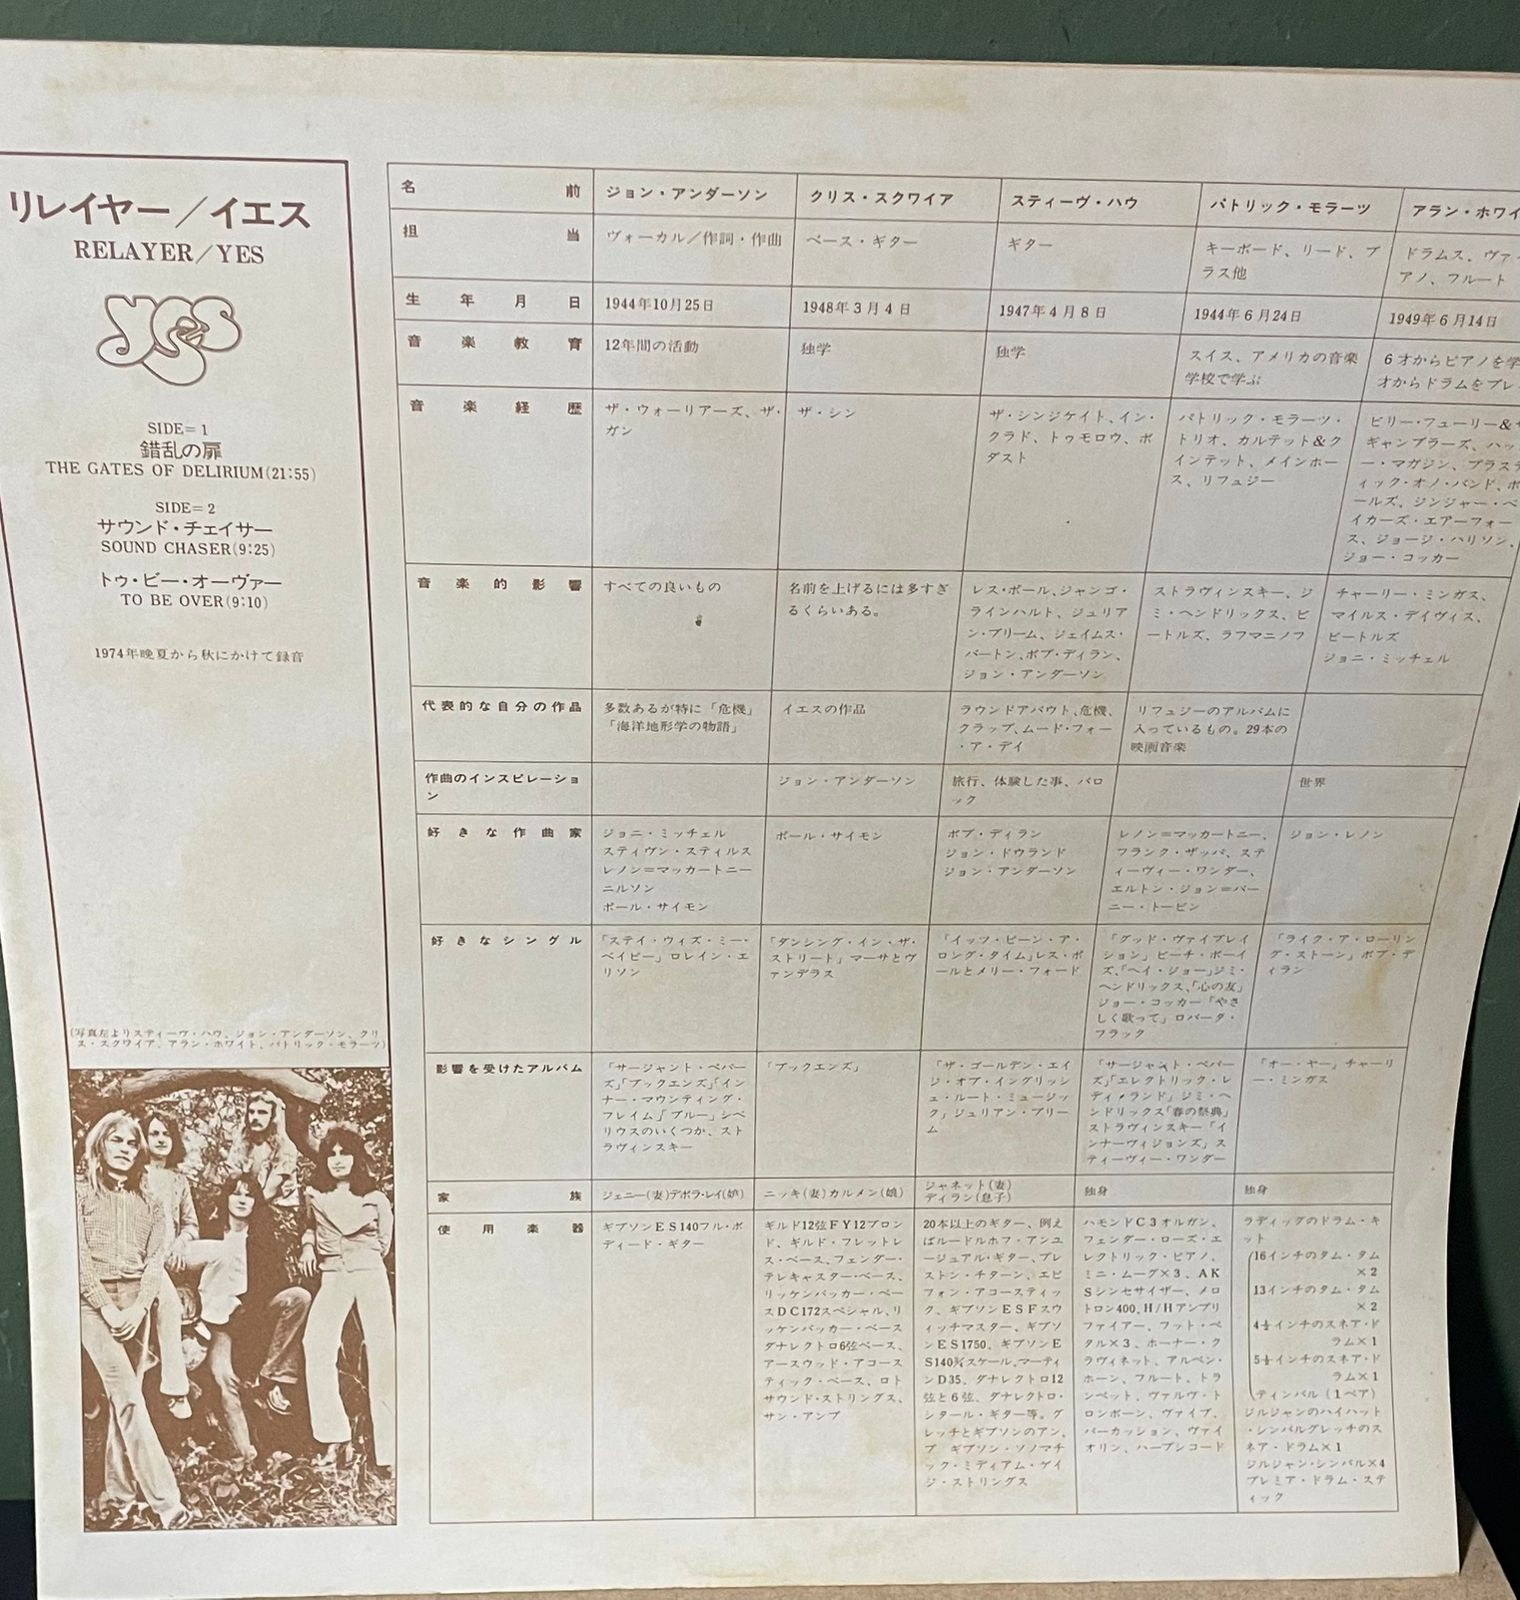 リレイヤー／イエス
RELAYER／YES
yes
SIDE=1
錯乱の扉
THE GATES OF DELIRIUM(21:55)
SIDE=2
サウンド・チェイサー
SOUND CHASER(9:25)
トゥ・ビー・オーヴァー
TO BE OVER(9:10)
1974年晩夏から秋にかけて録音
(写真左よりスティーヴ・ハウ、ジョン・アンダーソン、クリ
ス・スクワイア、アラン・ホワイト、パトリック・モラーツ)
名前
ジョン・アンダーソン
クリス・スクワイア
スティーヴ・ハウ
パトリック・モラーツ
アラン・ホワイ
担当
ヴォーカル／作詞・作曲
ベース・ギター
ギター
キーボード、リード、ブ
ラス他
ドラムス、ヴァ
アノ、フルート
生年月日
1944年10月25日
1948年3月4日
1947年4月8日
1944年6月24日
1949年6月14日
音楽教育
12年間の活動
独学
独学
スイス、アメリカの音楽
学校で学ぶ
6才からピアノを学
才からドラムをプレ
音楽経歴
ザ・ウォーリアーズ、ザ・
ガン
ザ・シン
ザ・シンジケイト、イン・
クラド、トゥモロウ、ボ
ダスト
パトリック・モラーツ・
トリオ、カルテット&ク
インテット、メインホー
ス、リフュジー
ビリー・フューリー&
ギャンブラーズ、ハッ
ー・マガジン、プラステ
ィック・オノ・バンド、
ールズ、ジンジャー・ベ
イカーズ・エアーフォー
ス、ジョージ・ハリソン、
ジョー・コッカー
音楽的影響
すべての良いもの
名前を上げるには多すぎ
るくらいある。
レス・ポール、ジャンゴ・
ラインハルト、ジュリア
ン・ブリーム、ジェイムス・
バートン、ボブ・ディラン、
ジョン・アンダーソン
ストラヴィンスキー、ジ
ミ・ヘンドリックス、ビ
ートルズ、ラフマニノフ
チャーリー・ミンガス、
マイルス・デイヴィス、
ビートルズ
ジョニ・ミッチェル
代表的な自分の作品
多数あるが特に「危機」
「海洋地形学の物語」
イエスの作品
ラウンドアバウト、危機、
クラップ、ムード・フォー
・ア・デイ
リフュジーのアルバムに
入っているもの。29本の
映画音楽
作曲のインスピレーショ
ン
ジョン・アンダーソン
旅行、体験した事、バロ
ック
世界
好きな作曲家
ジョニ・ミッチェル
スティヴン・スティルス
レノン=マッカートニー
ニルソン
ポール・サイモン
ポール・サイモン
ボブ・ディラン
ジョン・ドウランド
ジョン・アンダーソン
レノン=マッカートニー、
フランク・ザッパ、ステ
ィーヴィー・ワンダー、
エルトン・ジョン=バー
ニー・トーピン
ジョン・レノン
好きなシングル
「ステイ・ウィズ・ミー・
ベイビー」ロレイン・エ
リソン
「ダンシング・イン・ザ・
ストリート」マーサとヴ
ァンデラス
「イッツ・ビーン・ア・
ロング・タイム」レス・ポ
ールとメリー・フォード
「グッド・ヴァイブレイ
ション」ビーチ・ボーイ
ズ、「ヘイ・ジョー」ジミ・
ヘンドリックス、「心の友」
ジョー・コッカー「やさ
しく歌って」ロバータ・
フラック
「ライク・ア・ローリン
グ・ストーン」ボブ・デ
ィラン
影響を受けたアルバム
「サージャント・ペパー
ズ」「ブックエンズ」「イン
ナー・マウンティング・
フレイム」「ブルー」シベ
リウスのいくつか、スト
ラヴィンスキー
「ブックエンズ」
「ザ・ゴールデン・エイ
ジ・オブ・イングリッシ
ュ・ルート・ミュージッ
ク」ジュリアン・ブリー
ム
「サージャント・ペパー
ズ」「エレクトリック・レ
ディ・ランド」ジミ・ヘ
ンドリックス「春の祭典」
ストラヴィンスキー「イ
ンナーヴィジョンズ」ス
ティーヴィー・ワンダー
「オー・ヤー」チャーリ
ー・ミンガス
家族
ジェニー(妻)デボラ・レイ(娘)
ニッキ(妻)カルメン(娘)
ジャネット(妻)
ディラン(息子)
独身
独身
使用楽器
ギブソンES140フル・ボ
ディード・ギター
ギルド12弦FY12ブロン
ド、ギルド・フレットレ
ス・ベース、フェンダー・
テレキャスター・ベース、
リッケンバッカー・ベー
スDC172スペシャル、リ
ッケンバッカー・ベース
ダナレクトロ6弦ベース、
アースウッド・アコース
ティック・ベース、ロト
サウンド・ストリングス、
サン・アンプ
20本以上のギター、例え
ばルードルホフ・アンユ
ージュアル・ギター、プレ
ストン・チターン、エピ
フォン・アコースティッ
ク、ギブソンESFスウ
ィッチマスター、ギブソ
ンES1750、ギブソンE
S140¾スケール、マーティ
ンD35、ダナレクトロ12
弦と6弦、ダナレクトロ・
シタール・ギター等。グ
レッチとギブソンのアン
プ ギブソン・ソノマチ
ック・ミディアム・ゲイ
ジ・ストリングス
ハモンドC3オルガン、
フェンダー・ローズ・エ
レクトリック・ピアノ、
ミニ・ムーグ×3、AK
Sシンセサイザー、メロ
トロン400、H/Hアンプリ
ファイアー、フット・ペ
タル×3、ホーナー・ク
ラヴィネット、アルペン・
ホーン、フルート、トラ
ンペット、ヴァルヴ・ト
ロンボーン、ヴァイブ、
パーカッション、ヴァイ
オリン、ハープシコード
ラディッグのドラム・キ
ット
16インチのタム・タム
×2
13インチのタム・タム
×2
4½インチのスネア・ド
ラム×1
5½インチのスネア・ド
ラム×1
ティンパル(1ペア)
ジルジャンのハイハット
・シンバルグレッチのス
ネア・ドラム×1
ジルジャン・シンバル×4
プレミア・ドラム・ステ
ィック